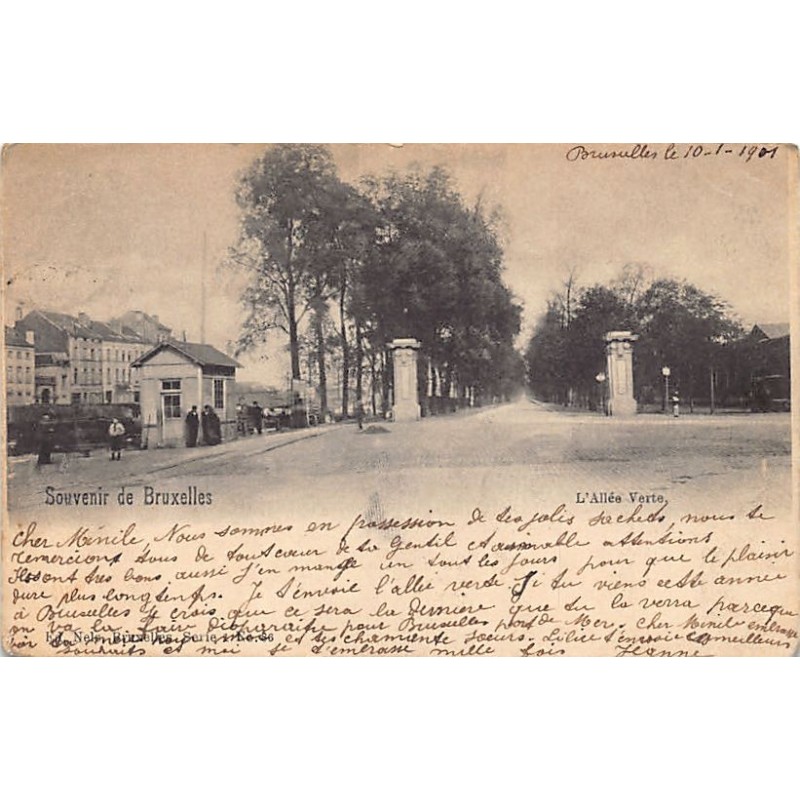 Bruxelles le 10-1-1901
Souvenir de Bruxelles
L'Allée Verte,
Cher Ménile, Nous sommes en possession de tes jolis sachets, nous te
remercions tous de tout coeur de ta Gentil et aimable attentions
Ils sont très bons, aussi J'en mange un tout les Jours pour que le plaisir
dure plus longtemps. Je t'envoie l'allée verte Si tu viens cette année
à Bruxelles Je crois que ce sera la dernière que tu la verra parceque
on va la faire disparaître pour Bruxelles port de Mer. Cher Ménile embrasse
Ed. Nels, Bruxelles, Serie 1 No. 36
et tes charmante soeurs. Lilice t'envoie meilleurs
souhaits et moi Je t'embrasse mille fois Jeanne